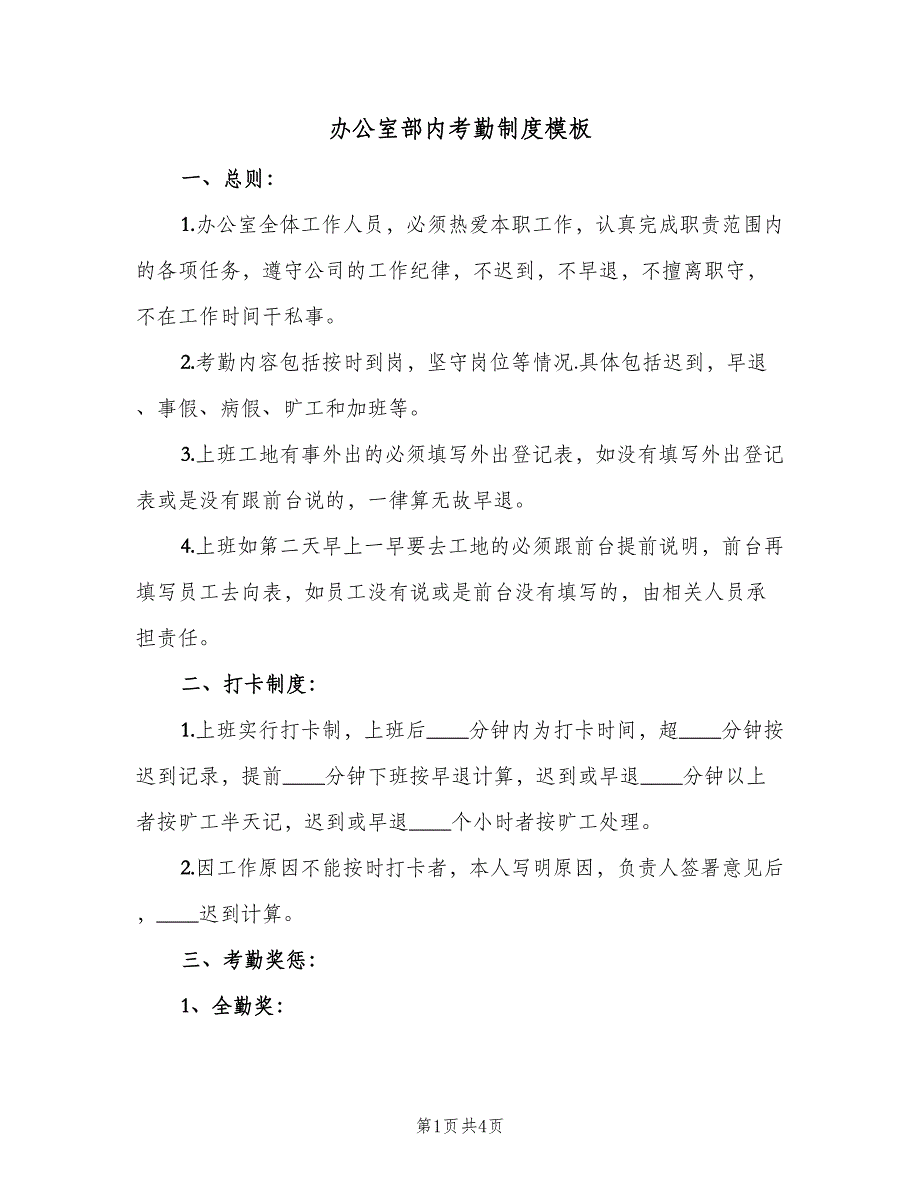 办公室部内考勤制度模板
一、总则：
1.办公室全体工作人员，必须热爱本职工作，认真完成职责范围内
的各项任务，遵守公司的工作纪律，不迟到，不早退，不擅离职守，
不在工作时间干私事。
2.考勤内容包括按时到岗，坚守岗位等情况.具体包括迟到，早退
、事假、病假、旷工和加班等。
3.上班工地有事外出的必须填写外出登记表，如没有填写外出登记
表或是没有跟前台说的，一律算无故早退。
4.上班如第二天早上一早要去工地的必须跟前台提前说明，前台再
填写员工去向表，如员工没有说或是前台没有填写的，由相关人员承
担责任。
二、打卡制度：
1.上班实行打卡制，上班后____分钟内为打卡时间，超____分钟按
迟到记录，提前____分钟下班按早退计算，迟到或早退____分钟以上
者按旷工半天记，迟到或早退____个小时者按旷工处理。
2.因工作原因不能按时打卡者，本人写明原因，负责人签署意见后
，____迟到计算。
三、考勤奖惩：
1、全勤奖：
第1页共4页